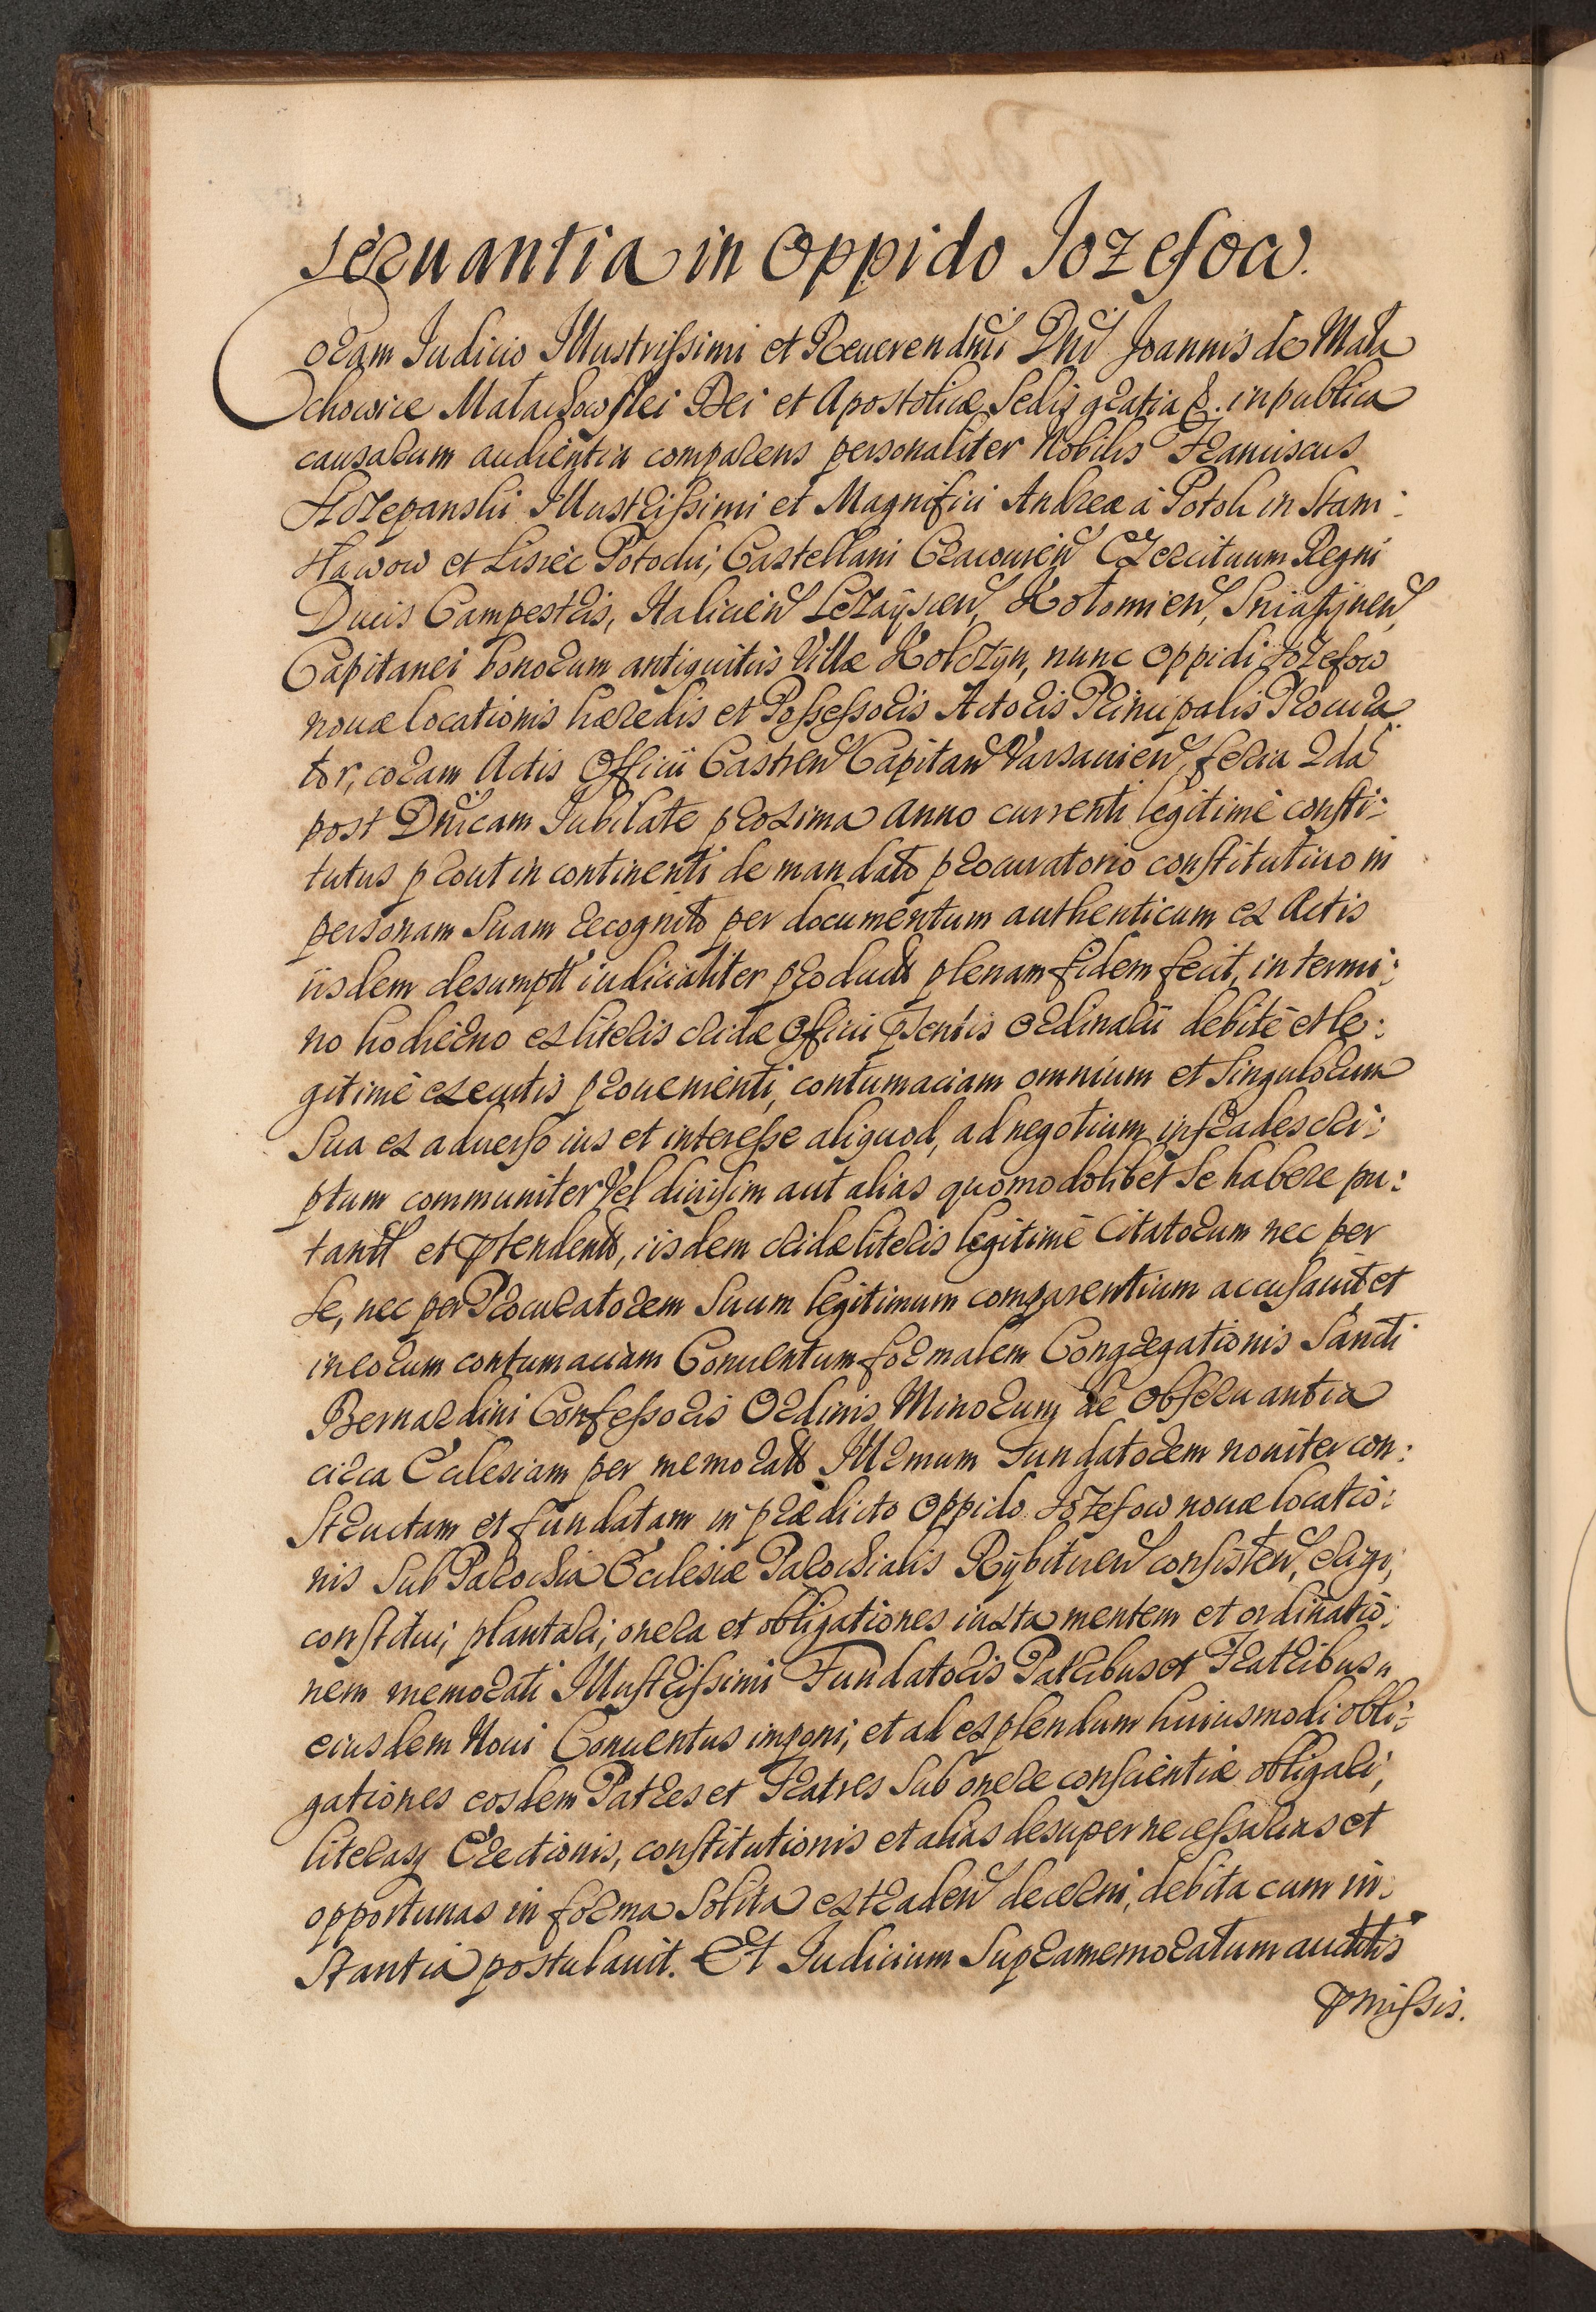 seruantia in Oppido Jozefow.
Coram Judicio Illustrissimi et Reuerendnii Dni Joannis de Mala
chowice Małachowskei Dei et Apostolicæ Sedis gratia &. in publica
causarum audientia comparens personaliter Nobilis Franciscus
Strzepanski Illustrissimi et Magnifici Andreæ à Potok in Stani:
sławow et Lisiec Potocki, Castellani Cracouien Exercituum Regni
Ducis Campestris, Halicien Leżaÿscen, Kołomien, Sniatÿnen,
Capitanei bonorum antiquitus Villæ Kolczyn, nunc Oppidi Jozefow
nouæ locationis hæredis et Possessoris Actoris Principalis Procura:
tor, coram Actis Officii Castren Capitan Varsauien, feria 2da
post Dnicam Jubilate proxima anno currenti legitimè consti:
tutus prout in continenti de mandato procuratorio constitutiuo in
personam Suam recognito per documentum authenticum ex Actis
iisdem desumptt iudicialiter produtt plenam fidem fecit, in termi:
no hodierno ex literis cridæ Officii pσentis Ordinarii debitè et le:
gitimè executis prouenienti, contumaciam omnium et Singulorum
Sua ex aduerso ius et interesse aliquod, ad negotium infrades cri:
ptum communiter Vel diuisim aut alias quomodolibet Se habere pu:
tantt et pτendentt, iisdem cridæ literis legitimè Citatorum nec per
Se, nec per Procuratorem Suum legitimum comparentium accusauit et
in eorum contumaciam Conuentum formalem Congregationis Sancti
Bernardini Confessoris Ordinis Minorum de Obseruantia
circa Ecclesiam per memoratt Illrmum Fundatorem nouiter con:
structam et fundatam in prædicto Oppido Jozefow nouæ locatio:
nis Sub Parochia Ecclesiæ Parochialis Rÿbituen consisten, erigi,
constitui, plantari, onera et obligationes iuxta mentem et ordinatio:
nem memorati Illustrissimi Fundatoris Patribus et Fratribus
eiusdem Noui Conuentus imponi, et ad explendum huiusmodi obli:
gationes eosdem Patres et Fratres Sub onere conscientiæ obligari,
literasq Erectionis, constitutionis et alias desuper necessarias et
opportunas in forma Solita extraden decerni, debita cum in:
stantia postulauit. Et Judicium Supramemoratum auditis
pmissis.